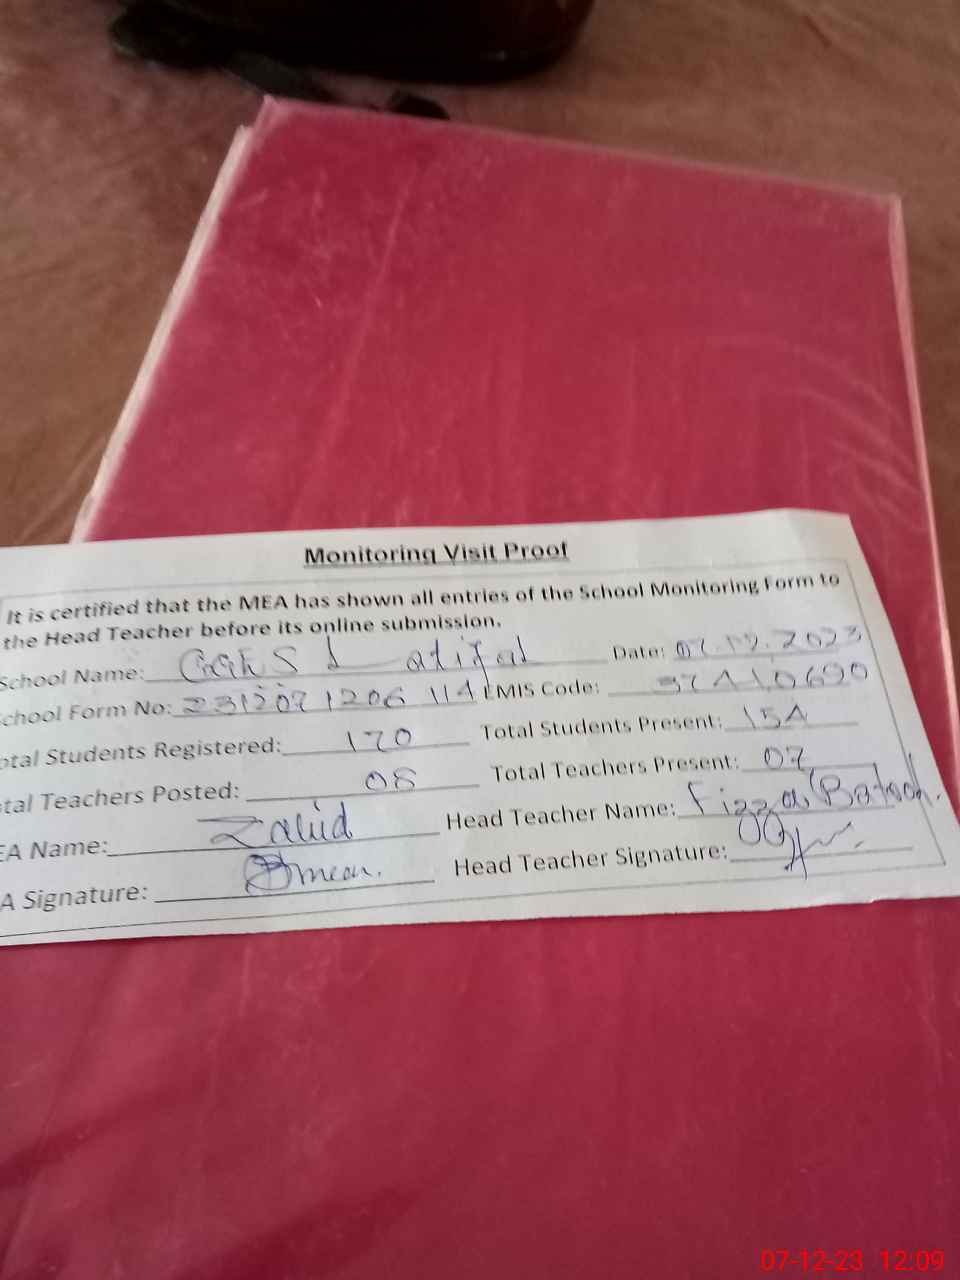 Monitoring Visit Proof
It is certified that the MEA has shown all entries of the School Monitoring Form to
the Head Teacher before its online submission.
School Name: Date: 07.12.2023
School Form No: 231207 1206 114 EMIS Code:
otal Students Registered: 170 Total Students Present: 154
tal Teachers Posted: 08 Total Teachers Present: 07
EA Name: Zahid Head Teacher Name: Fizza Batool.
A Signature: Head Teacher Signature:
07-12-23 12:09